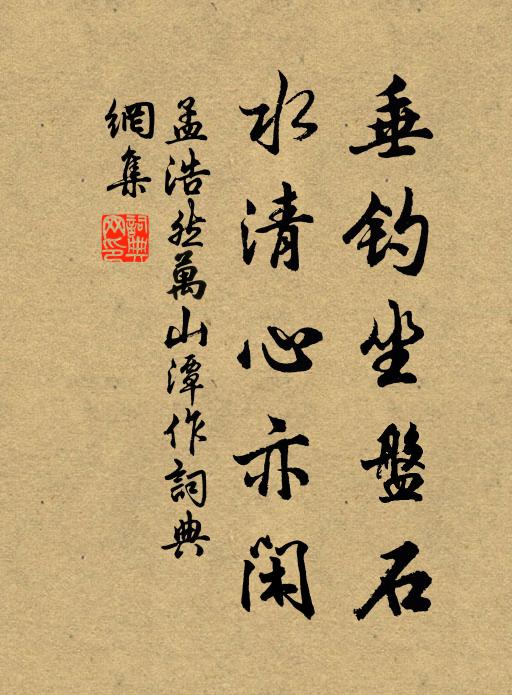 垂钓坐盤石
水清心亦闲
孟浩然萬山潭作詞典
網集
詞典网印